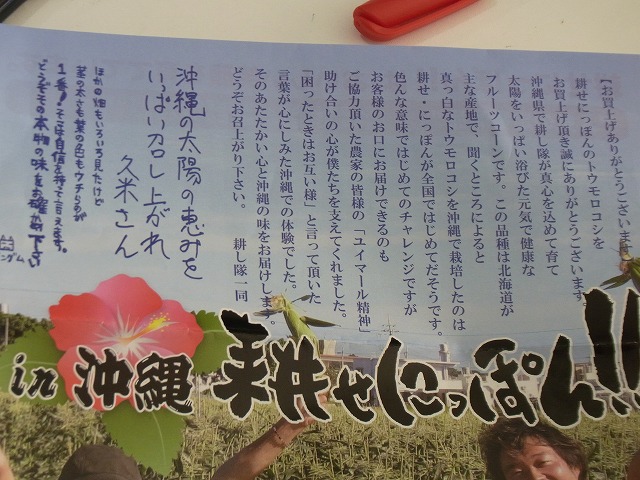 【お買上げありがとうございます
耕せにっぽんのトウモロコシを
お買上げ頂き誠にありがとうございます
沖縄県で耕し隊が真心を込めて育て
太陽をいっぱい浴びた元気で健康な
フルーツコーンです。この品種は北海道が
主な産地で、聞くところによると
真っ白なトウモロコシを沖縄で栽培したのは
耕せ・にっぽんが全国ではじめてだそうです。
色んな意味ではじめてのチャレンジですが
お客様のお口にお届けできるのも
ご協力頂いた農家の皆様の「ユイマール精神」
助け合いの心が僕たちを支えてくれました。
「困ったときはお互い様」と言って頂いた
言葉が心にしみた沖縄での体験でした。
そのあたたかい心と沖縄の味をお届けします。
どうぞお召上がり下さい。 耕し隊一同
沖縄の太陽の恵みを
いっぱい召し上がれ
久米さん
ほかの畑もいろいろ見たけど
茎の太さも葉の色もウチらのが
1番!そこは自信を持って言えます。
どうぞその本物の味を確かめ下さい
in 沖縄 耕せにっぽん!!